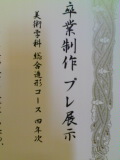 卒業制作 プレ展示
美術学科 総合造形コース 四年次